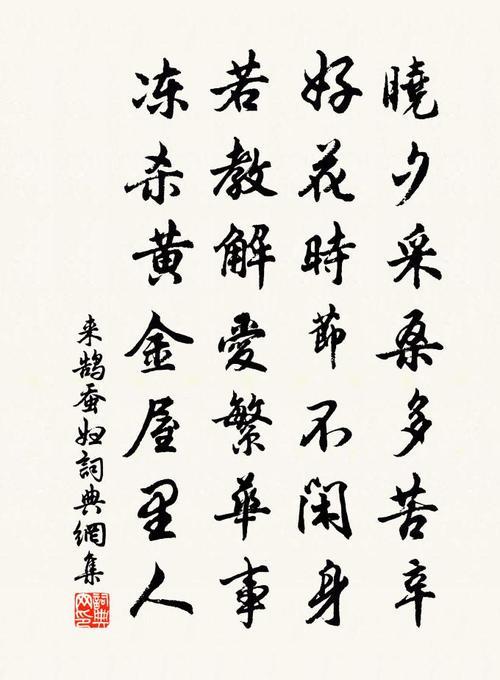 曉夕采桑多苦辛
好花時節不閑身
若教解愛繁華事
冻杀黄金屋里人
来鹄蚕妇詞典網集
詞典网印